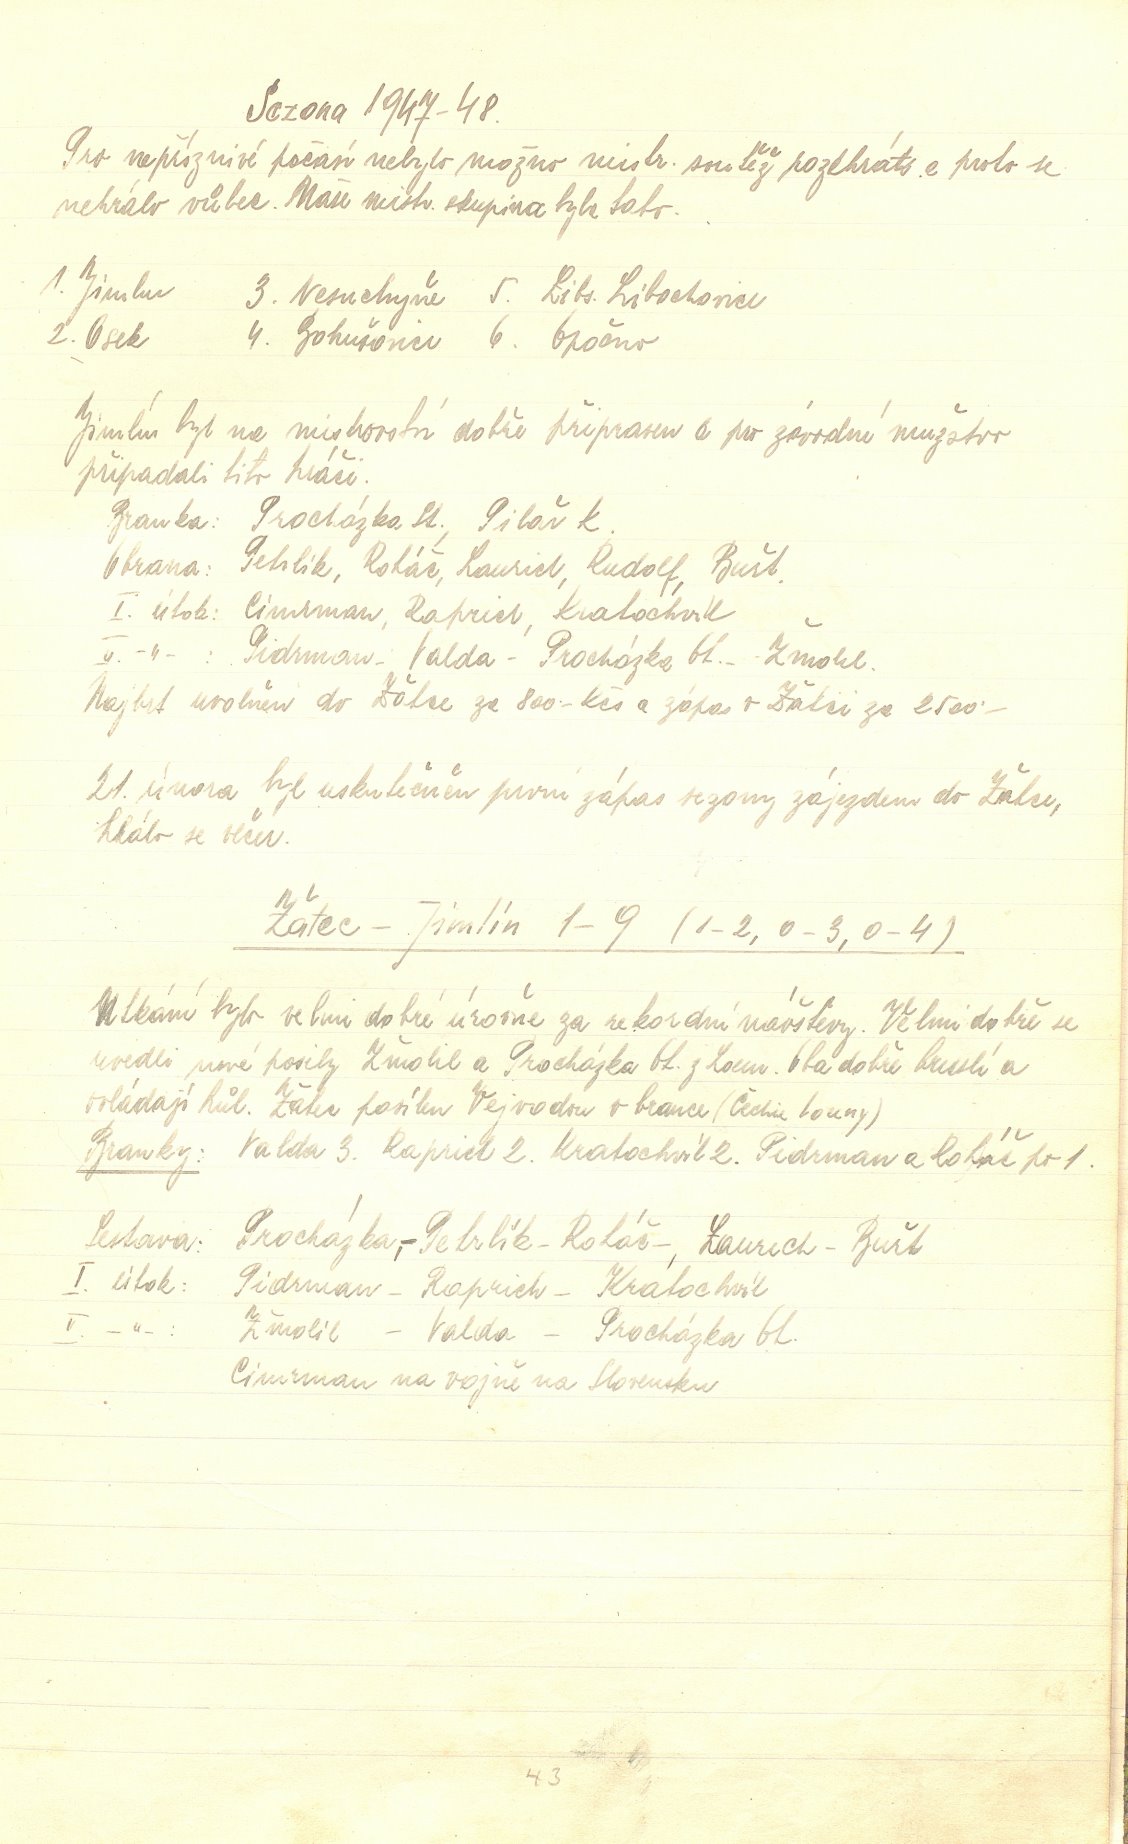 Sezona 1947-48.
Pro nepříznivé počasí nebylo možno mistr. soutěž rozehráti a proto se
nehrálo vůbec. Naše mistr. skupina byla tato.
1. Jimlín 3. Nesuchyně 5. Libs. Libochovice
2. Osek 4. Bohušovice 6. Opočno
Jimlín byl na mistrovství dobře připraven a pro závodní mužstvo
připadali tito hráči.
Branka: Procházka St., Pilař K.
Obrana: Petrlík, Roháč, Laurich, Rudolf, Buřt.
I. útok: Cimrman, Raprich, Kratochvíl
II. -"- : Pidrman - Valda - Procházka Ot. - Žmolil.
uvolněn do Žatce za 800.- Kčs a zápas v Žatci za 2500.-
21. února byl uskutečněn první zápas sezony zájezdem do Žatce,
hrálo se večer.
Žatec - Jimlín 1-9 (1-2, 0-3, 0-4)
Utkání bylo velmi dobré úrovně za rekordní návštěvy. Velmi dobře se
uvedli nové posily Žmolil a Procházka Ot. z Loun. Oba dobře bruslí a
ovládají hůl. Žatec posílen Vejvodou v brance (Čechie Louny)
Branky: Valda 3. Raprich 2. Kratochvíl 2. Pidrman a Roháč po 1.
Sestava: Procházka, - Petrlík - Roháč -, Laurich - Buřt
I. útok: Pidrman - Raprich - Kratochvíl
II. -"- : Žmolil - Valda - Procházka Ot.
Cimrman na vojně na Slovensku
43